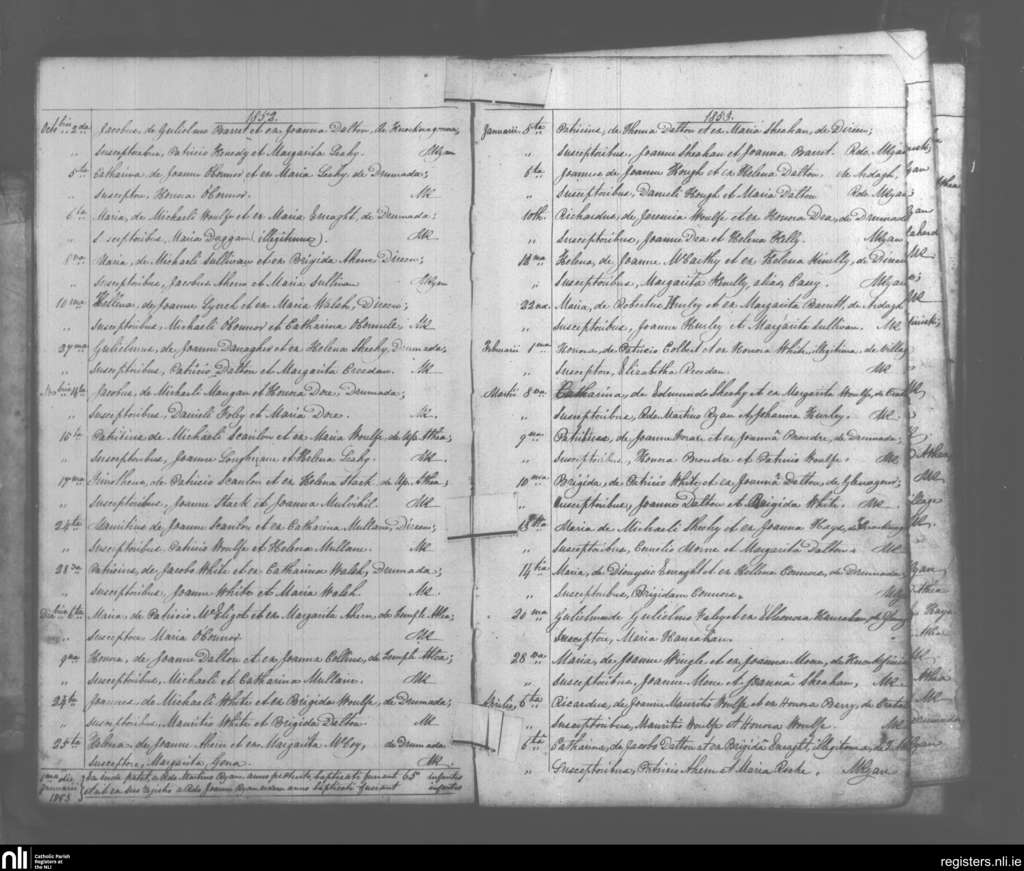 1852.
Octbris 2da Jacobus, de Gulielmo Barret et ex Joanna Dalton, de Knocknagorna;
" Susceptoribus, Patricio Kenedy et Margarita Leahy. MRyan
5ta Catharina, de Joanne O'Connor et ex Maria Leahy, de Drumada;
" Susceptore, Honora O'Connor. MR
6ta Maria, de Michaeli Woulfe et ex Maria Enraght, de Drumada;
" Susceptoribus, Maria Duggan (illegitima). MR
Maria, de Michaeli Sullivan et ex Brigida Ahern, Direen;
" Susceptoribus, Jacobus Ahern et Maria Sullivan MRyan
10ma Hellena, de Joanne Lynch et ex Maria Walsh, Direen;
" Susceptoribus, Michaeli O'Connor et Catharina MR
27ma Gulielmus, de Joanne Danagher et ex Helena Sheehy, Drumada;
" Susceptoribus, Patricio Dalton et Margarita Creedan. MR
14ta Jacobus, de Michaeli Mangan et Honora Dore, Drumada;
" Susceptoribus, Danieli Foley et Maria Dore. MR
15ta Patritius de Michaeli Scanlon et ex Maria Woulfe, de Up. Athea;
" Susceptoribus, Joanne Loughnane et Helena Leahy. MR
17ma de Patricio Scanlon et ex Helena Stack, de Up. Athea;
" Susceptoribus, Joanne Stack et Joanna Mulvihil. MR
24ta Mauritius de Joanne Scanlon et ex Catharina Mullane, Direen;
" Susceptoribus, Patricio Woulfe et Helena Mullane. MR
28va Patricius, de Jacobo White et ex Catharina Walsh, Drumada;
" Susceptoribus, Joanne White et Maria Walsh. MR
6ta Maria de Patricio McEligot et ex Margarita Ahern, de Temple Athea;
" Susceptore Maria O'Connor. MR
9na Honora, de Joanne Dalton et ex Joanna Collins, de Temple Athea;
" Susceptoribus, Michaeli et Catharina Mullane. MR
24ta Joannes, de Michaeli White et ex Brigida Woulfe, de Drumada;
" Susceptoribus, Mauritio White et Brigida Dalton. MR
25ta Helena, de Joanne Ahern et ex Margarita McCoy, de Drumada
" Susceptore, Margarita MR
1ma die Januarii 1853 Ex inde patet, a Rdo Martino Ryan, anno precedente baptizati fuerunt 65 infantes
et ut ex suo registro a Rdo Joanne Ryan eodem anno baptizati fuerunt infantes
1853.
Januarii 5ta Patricius, de Thoma Dalton et ex Maria Sheahan, de Direen;
" Susceptoribus, Joanne Sheahan et Joanna Barret. Rdo. MRyan
6ta Joannes de Joanne Hough et ex Helena Dalton, de Ardagh,
" Susceptoribus, Danieli Hough et Maria Dalton Rdo. MRyan
10th. Richardus, de Jeremia Woulfe et ex Honora Dea, de Drumada
" Susceptoribus, Joanne Dea et Helena Kelly. MRyan
18va Helena, de Joanne McCarthy et ex Helena Kinully, de Direen
" Susceptoribus, Margarita Kinully, alias Casey. MRyan
22da Maria, de Robertus Hurley et ex Margarita Barrett, de Ardagh
" Susceptoribus, Joanne Hurley et Margarita Sullivan. MR
Februarii 1ma Honora, de Patricio Colbert et ex Honora White, illegitima, de Village
" Susceptore, Elizabetha Reardan. MR
Martii 8va Catharina, de Edmundo Sheehy et ex Margarita Woulfe, de
" Susceptoribus, Rdo. Martino Ryan et Johanna Hurley. MR
9na Patritius, de Joanne Moran et ex Joannâ Broudre, de Drumada;
" Susceptoribus, Honora Broudre et Patricio Woulfe. MR
10ma Brigida, de Patricio White et ex Joannâ Dalton, de Glenagore;
" Susceptoribus, Joanne Dalton et Brigida White. MR
13tia Maria de Michaeli Sheehy et ex Joanna Hayes,
" Susceptoribus, Cornelio Horne et Margarita Dalton. MR
14tia Maria, de Dionysio Enraght et ex Hellena Connors, de Drumada
" Susceptoribus, Brigidam Connors. MRyan
20ma Gulielmus de Gulielmo Faley et ex Elleonora Hanrahan,
" Susceptore, Maria Hanrahan.
28va Maria, de Joanne Wingle et ex Joanna Mone, de
" Susceptoribus, Joanne Mone et Joannâ Sheahan. MR
Aprilis, 5ta Ricardus, de Joanne Mauritio Woulfe et ex Honora Berry, de
" Susceptoribus, Mauritio Woulfe et Honora Woulfe. MR
6ta Catharina, de Jacobo Dalton et ex Brigidâ Enraght, illegitima,
" Susceptoribus, Patricio Ahern et Maria Roche. MRyan
nli
Catholic Parish
Registers at
the NLI
registers.nli.ie